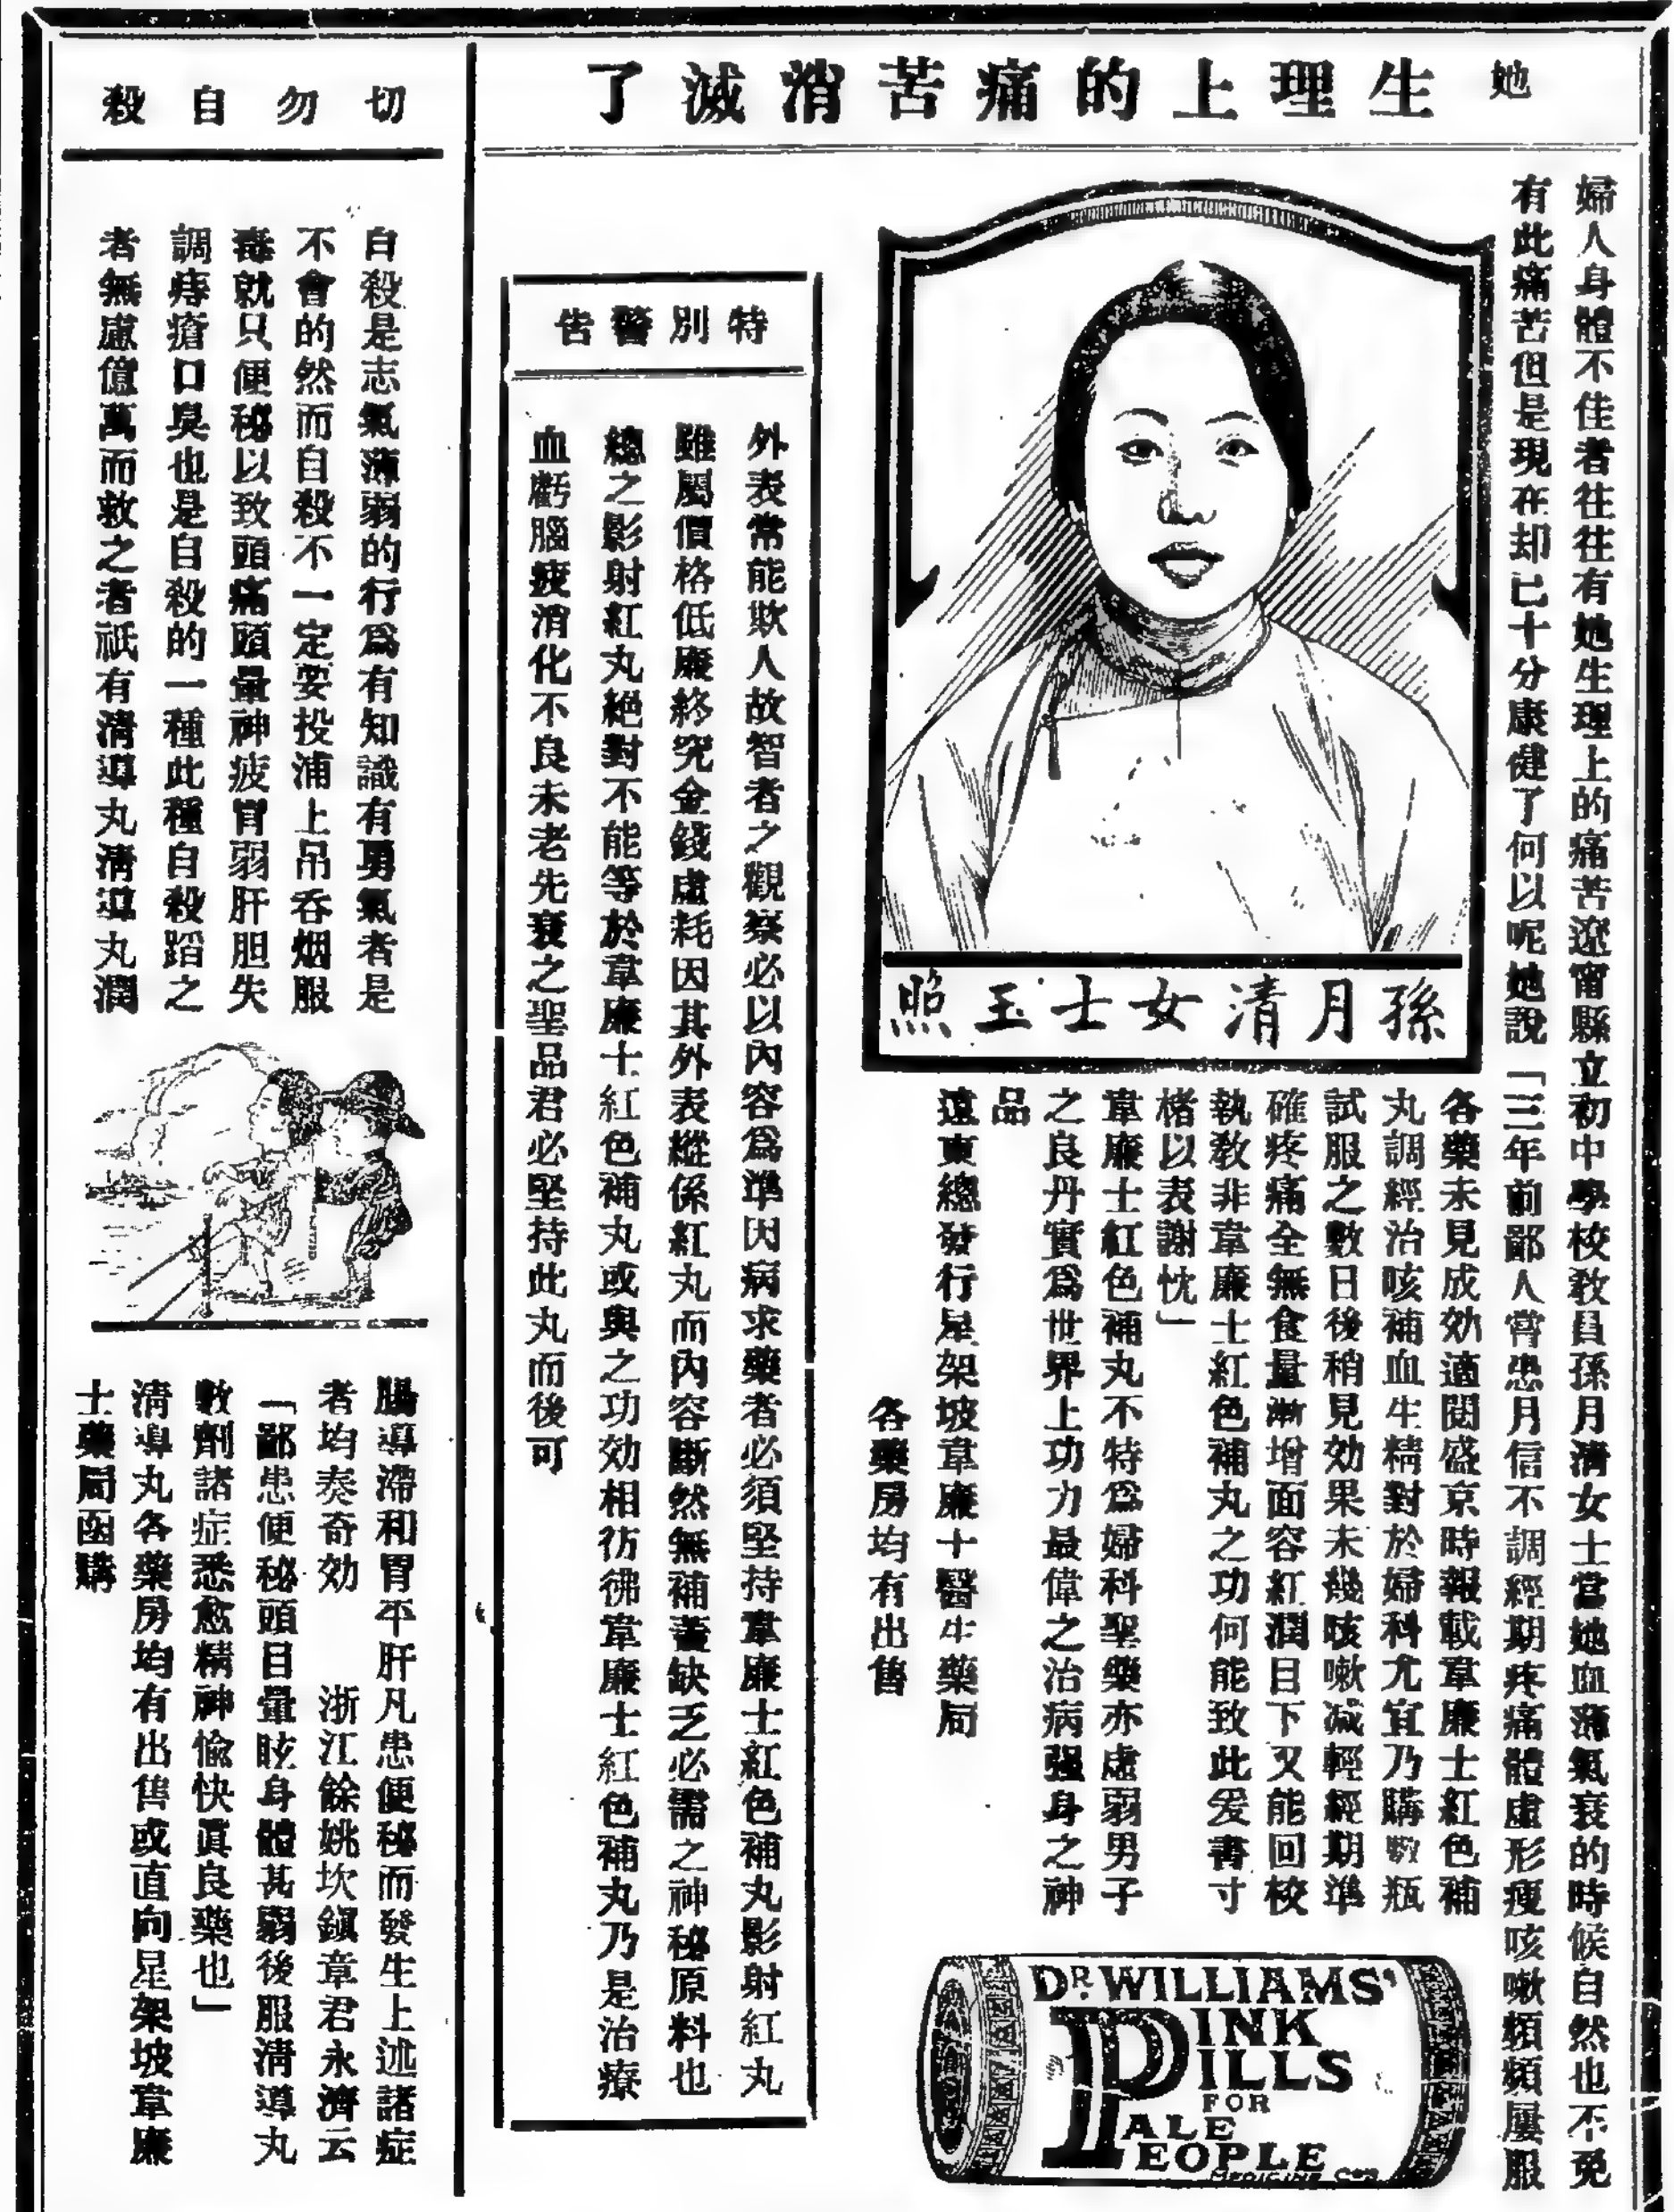 她生理上的痛苦消滅了
婦人身體不佳者往往有她生理上的痛苦遼甯縣立初中學校教員孫月清女士當她血薄氣衰的時候自然也不免
有此痛苦但是現在却已十分康健了何以呢她說「三年前鄙人嘗患月信不調經期疼痛體虛形瘦咳嗽頻頻屢服
各藥未見成効適閱盛京時報載韋廉士紅色補
丸調經治咳補血生精對於婦科尤宜乃購數瓶
試服之數日後稍見効果未幾咳嗽減輕經期準
確疼痛全無食量漸增面容紅潤目下又能回校
執敎非韋廉士紅色補丸之功何能致此爰書寸
楮以表謝忱」
韋廉士紅色補丸不特爲婦科聖藥亦虛弱男子
之良丹實爲世界上功力最偉之治病强身之神
品
遠東總發行星架坡韋廉士醫生藥局
各藥房均有出售
孫月清女士玉照
DR. WILLIAMS'
PINK
PILLS
FOR
PALE
PEOPLE
MEDICINE Co.
特別警告
外表常能欺人故智者之觀察必以內容爲準因病求藥者必須堅持韋廉士紅色補丸影射紅丸
雖屬價格低廉終究金錢虛耗因其外表縱係紅丸而內容斷然無補蓋缺乏必需之神秘原料也
總之影射紅丸絕對不能等於韋廉士紅色補丸或與之功効相彷彿韋廉士紅色補丸乃是治療
血虧腦疲消化不良未老先衰之聖品君必堅持此丸而後可
切勿自殺
自殺是志氣薄弱的行爲有知識有勇氣者是
不會的然而自殺不一定要投浦上吊吞烟服
毒就只便秘以致頭痛頭暈神疲胃弱肝胆失
調痔瘡口臭也是自殺的一種此種自殺蹈之
者無慮億萬而救之者祇有清導丸清導丸潤
腸導滯和胃平肝凡患便秘而發生上述諸症
者均奏奇効 浙江餘姚坎鎭章君永濟云
「鄙患便秘頭目暈眩身體甚弱後服清導丸
數劑諸症悉愈精神愉快眞良藥也」
清導丸各藥房均有出售或直向星架坡韋廉
士藥局函購